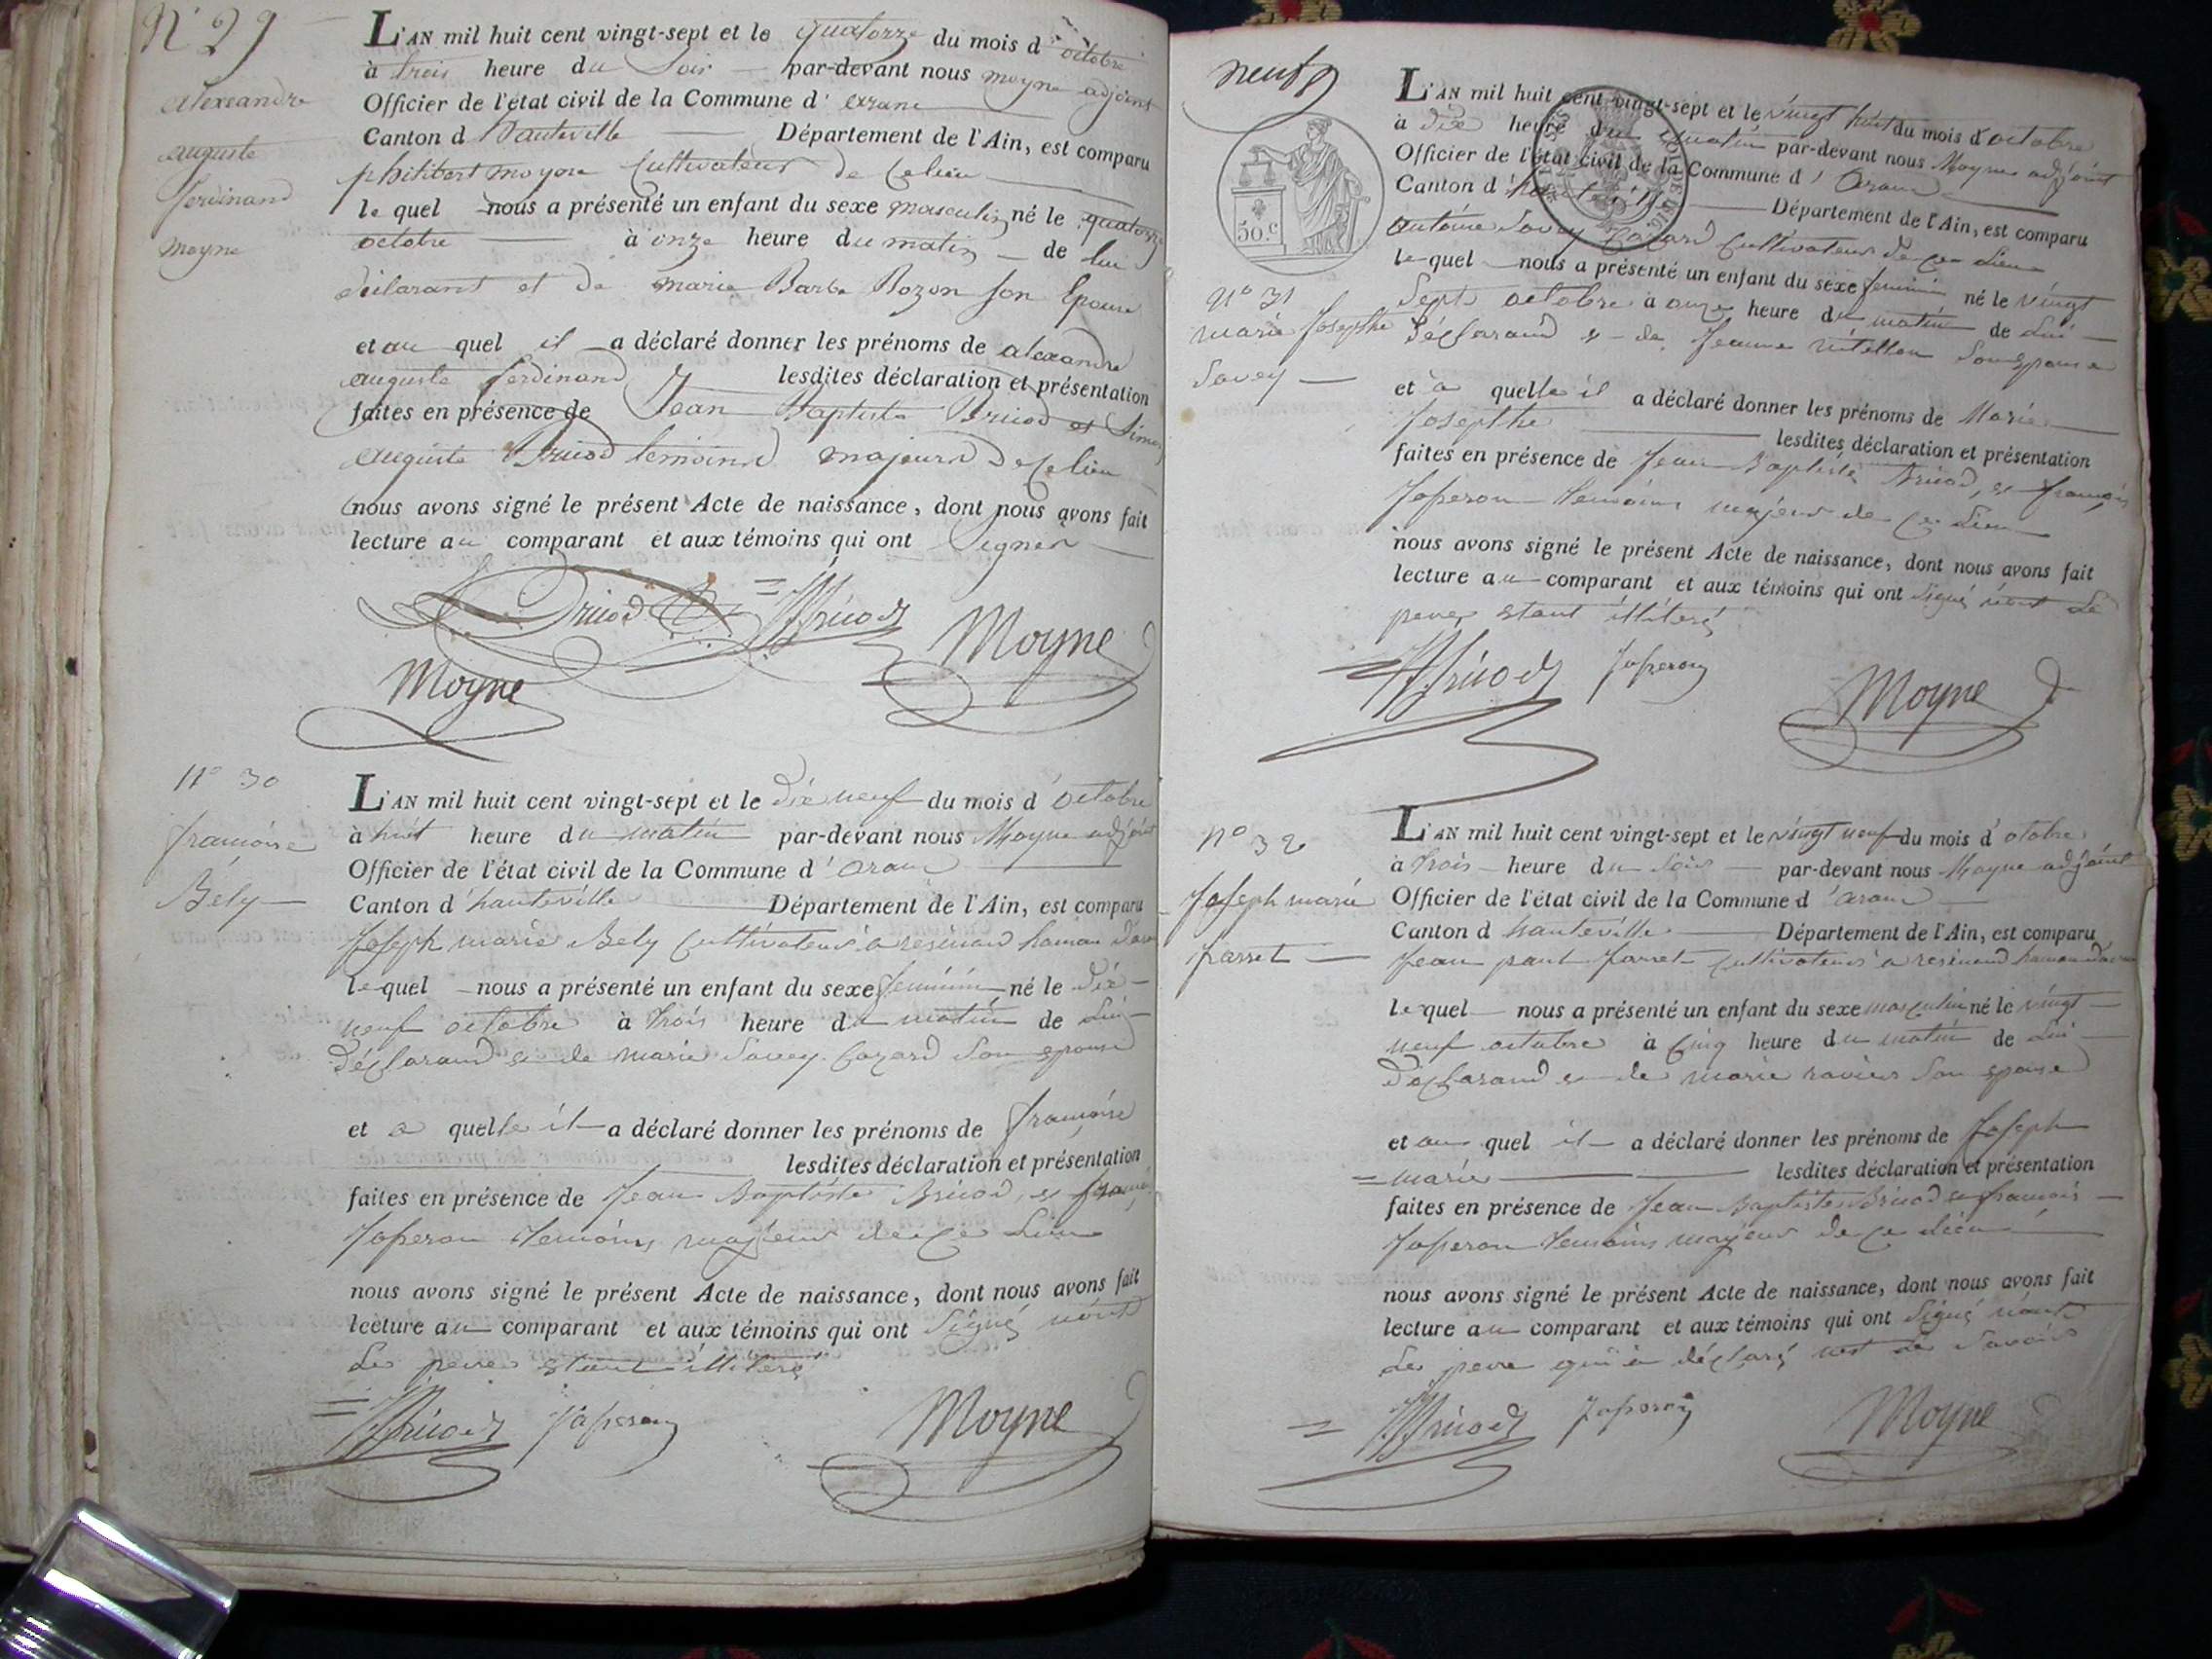 N° 29
Alexeandre
auguste
ferdinand
moyne
L'AN mil huit cent vingt-sept et le quatorze du mois d'octobre
à trois heure du soir par-devant nous moyne adjoint
Officier de l'état civil de la Commune d'
Canton d hauteville Département de l'Ain, est comparu
philibert moyne Cultivateur de ce lieu
le quel nous a présenté un enfant du sexe masculin né le quatorze
octobre à onze heure du matin de lui
déclarant et de marie Barbe Bozon son Epouse
et au quel il a déclaré donner les prénoms de alexandre
auguste ferdinand lesdites déclaration et présentation
faites en présence de Jean Baptiste Bruod et
auguste Bruod témoins majeurs de ce lieu
nous avons signé le présent Acte de naissance, dont nous avons fait
lecture au comparant et aux témoins qui ont signer
Bruod Bruod Moyne
Moyne
N° 30
françoise
Bély
L'AN mil huit cent vingt-sept et le dix neuf du mois d'octobre
à huit heure du matin par-devant nous Moyne adjoint
Officier de l'état civil de la Commune d'aranc
Canton d'hauteville Département de l'Ain, est comparu
Joseph marie Bely Cultivateur a resinand hamau
le quel nous a présenté un enfant du sexe féminin né le dix
neuf octobre à trois heure du matin de lui
déclarand et de marie Savey Cozard son epouse
et a quelle il a déclaré donner les prénoms de françoise
lesdites déclaration et présentation
faites en présence de Jean Baptiste Bruod, et
Joperon témoins majeur de ce lieu
nous avons signé le présent Acte de naissance, dont nous avons fait
lecture au comparant et aux témoins qui ont signé nont
le pere etant illiteré
Bruod Joperon Moyne
neuf 9
50.C
N° 31
marie Josephte
Savey
L'AN mil huit cent vingt-sept et le vingt huit du mois d'octobre
à dix heure du matin par-devant nous Moyne adjoint
Officier de l'état civil de la Commune d'aranc
Canton d' Département de l'Ain, est comparu
antoine Savey Cozard Cultivateur de ce lieu
le quel nous a présenté un enfant du sexe feminin né le vingt
Sept octobre à onze heure du matin de lui
déclarand et de Jeanne son epouse
et a quelle il a déclaré donner les prénoms de Marie
Josephte lesdites déclaration et présentation
faites en présence de Jean Baptiste Bruod, et françois
Joperon temoins majeur de ce lieu
nous avons signé le présent Acte de naissance, dont nous avons fait
lecture au comparant et aux témoins qui ont signé nont le
pere etant illiteré
Bruod Joperon Moyne
N° 32
Joseph marie
Jarret
L'AN mil huit cent vingt-sept et le vingt neuf du mois d'otobre
à trois heure du soir par-devant nous Moyne adjoint
Officier de l'état civil de la Commune d'aranc
Canton d hauteville Département de l'Ain, est comparu
Jean paul Jarret Cultivateur a resinand hamau
le quel nous a présenté un enfant du sexe masculin né le vingt
neuf octobre à cinq heure du matin de lui
déclarand et de marie ravier son epouse
et au quel il a déclaré donner les prénoms de Joseph
marie lesdites déclaration et présentation
faites en présence de Jean Baptiste Bruod et françois
Joperon temoins majeur de ce lieu
nous avons signé le présent Acte de naissance, dont nous avons fait
lecture au comparant et aux témoins qui ont signé nont
le pere qui a déclaré
Bruod Joperon Moyne